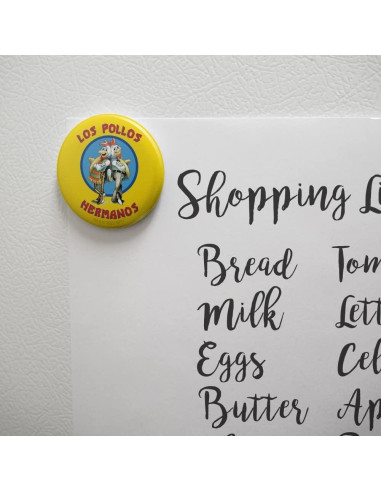 LOS POLLOS
HERMANOS
Shopping Li
Bread Tom
Milk Lett
Eggs Cel
Butter Ap